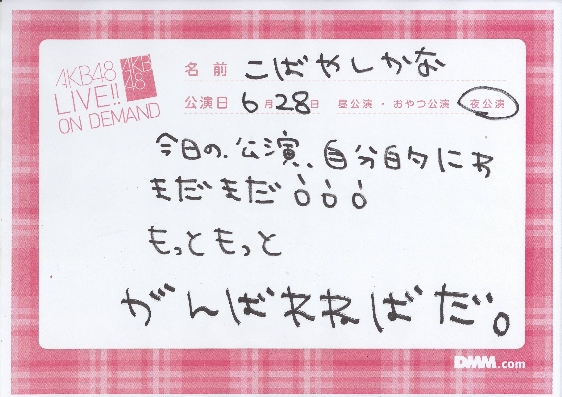 AKB48
LIVE!!
ON DEMAND
AKB
48
名前 こばやしかな
公演日 6月28日 昼公演・おやつ公演 夜公演
今日の、公演、自分的にわ
まだまだ!!!
もっともっと
がんばれねばだ。
DMM.com